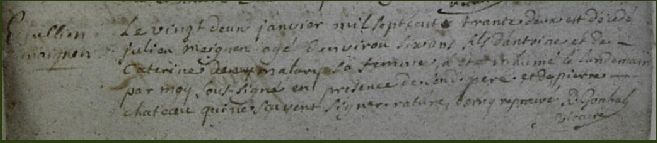 Jullien Meignen
Le vingt deux janvier mil sept cent trante deux est décédé
julien meignen agé d'environ six ans fils d'antoine et de
Caterine sa femme, a été inhumé le landemain
par moy sous signé en présence de sondit père et de pierre
chateau qui ne scavent signer rature
vicaire